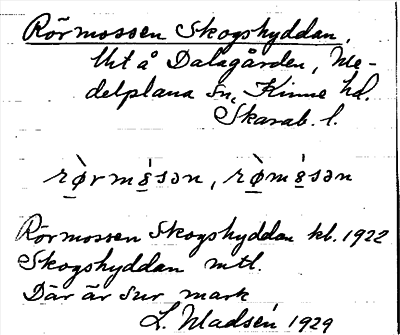 Rörmossen Skogshyddan,
Uht å Dalagården, Me-
delplana sn, Kinne hd.
Skarab. l.
rø̀rmɵ́sən, rø̀mɵ́sən
Rörmossen Skogshyddan kl. 1922
Skogshyddan mtl.
Där är sur mark
L. Madsén 1929